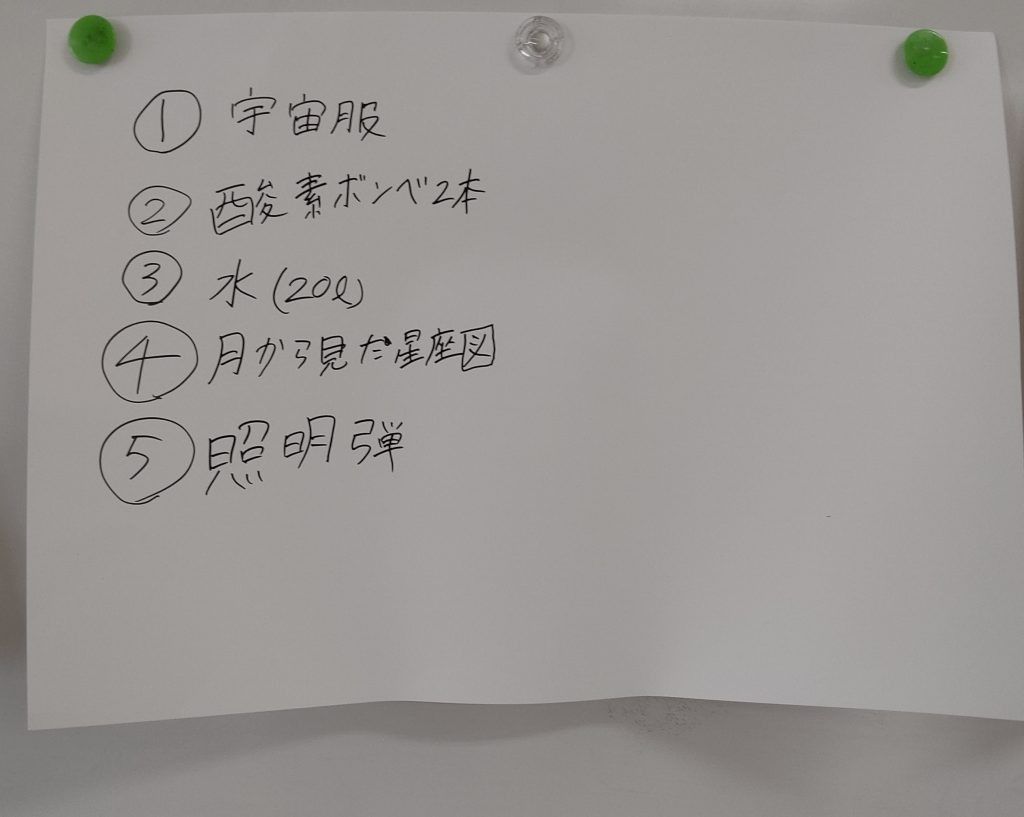 ① 宇宙服
② 酸素ボンベ2本
③ 水(20ℓ)
④ 月から見た星座図
⑤ 照明弾